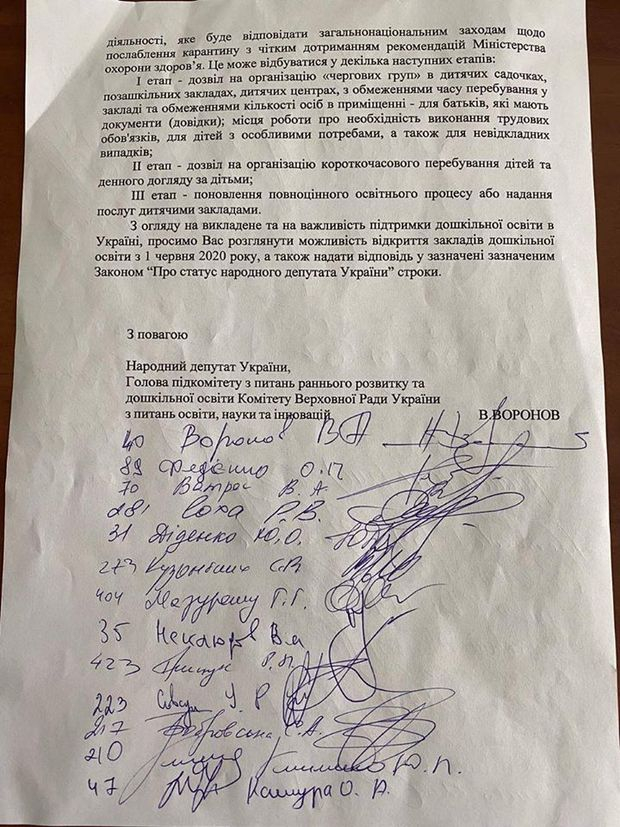 діяльності, яке буде відповідати загальнонаціональним заходам щодо
послаблення карантину з чітким дотриманням рекомендацій Міністерства
охорони здоров’я. Це може відбуватися у декілька наступних етапів:
І етап - дозвіл на організацію «чергових груп» в дитячих садочках,
позашкільних закладах, дитячих центрах, з обмеженнями часу перебування у
закладі та обмеженнями кількості осіб в приміщенні - для батьків, які мають
документи (довідки); місця роботи про необхідність виконання трудових
обов'язків, для дітей з особливими потребами, а також для невідкладних
випадків;
ІІ етап - дозвіл на організацію короткочасового перебування дітей та
денного догляду за дітьми;
ІІІ етап - поновлення повноцінного освітнього процесу або надання
послуг дитячими закладами.
З огляду на викладене та на важливість підтримки дошкільної освіти в
Україні, просимо Вас розглянути можливість відкриття закладів дошкільної
освіти з 1 червня 2020 року, а також надати відповідь у зазначені зазначеним
Законом “Про статус народного депутата України” строки.
З повагою
Народний депутат України,
Голова підкомітету з питань раннього розвитку та
дошкільної освіти Комітету Верховної Ради України
з питань освіти, науки та інновацій В.ВОРОНОВ
40 Воронов В А
89 О.П
70 В. А.
281 Соха Р.В.
31 Діденко Ю.О.
273
404 Мазурашу Г.Г.
35 Неклюдов В.М
423
223
217 Бобровська С.А.
210 Тимошенко Ю. В.
47 Кашура О. А.